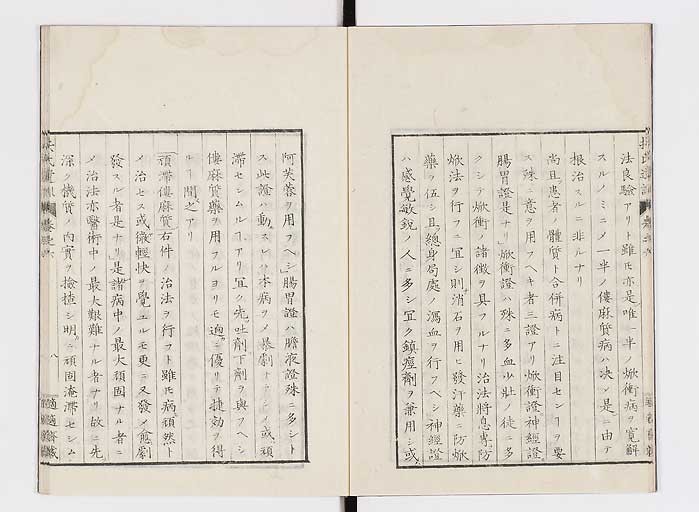 法良驗アリト雖モ亦是唯一半ノ焮衝病ヲ寛解
スルノミニメ一半ノ僂麻質病ハ决メ是ニ由テ
根治スルニ非ルナリ
尚且患者ノ體質ト合併病トニ注目センヿヲ要
ス殊ニ意ヲ用フヘキ者三證アリ焮衝證神經證
腸胃證是ナリ焮衝證ハ殊ニ多血少壯ノ徒ニ多
クシテ焮衝ノ諸徴ヲ具フルナリ治法將息專防
焮法ヲ行フニ宜シ則消石ヲ用ヒ發汗藥ニ防焮
藥ヲ伍シ且總身局處ノ瀉血ヲ行フヘシ神經證
ハ感覺敏銳ノ人ニ多シ宜ク鎮痙劑ヲ兼用シ或
阿芙蓉ヲ用フヘシ腸胃證ハ膽液證殊ニ多シト
ス此證ハ動スレハ本病ヲメ暴劇トナシメ或頑
滯セシムルヿアリ宜ク先吐劑下劑ヲ與フヘシ
僂麻質藥ヲ用フルヨリモ迥ニ優リテ捷効ヲ得
ルヿ間之アリ
頑滯僂麻質右件ノ治法ヲ行フト雖モ病頑然ト
メ治セス或微輕快ヲ覺ユルモ更ニ又發メ愈劇
發スル者是ナリ是諸病中ノ最大頑固ナル者ニ
メ治法亦醫術中ノ最大艱難ナル者ナリ故ニ先
深ク機質ノ内實ヲ撿揸シ明ニ頑固淹滯セシム
八
適適齋藏